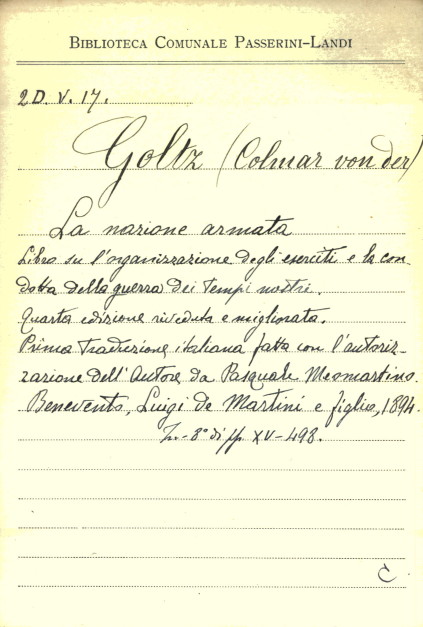 BIBLIOTECA COMUNALE PASSERINI-LANDI
2D. V. 17.
Goltz (Colmar von der)
La nazione armata
Libro su l'organizzazione degli eserciti e la con-
dotta della guerra dei tempi nostri.
Quarta edizione riveduta e migliorata.
Prima traduzione italiana fatta con l'autoriz-
zazione dell'Autore da Pasquale Mesmartino.
Benevento, Luigi de Martini e figlio, 1894.
In-8° di pp. XV-498.
C